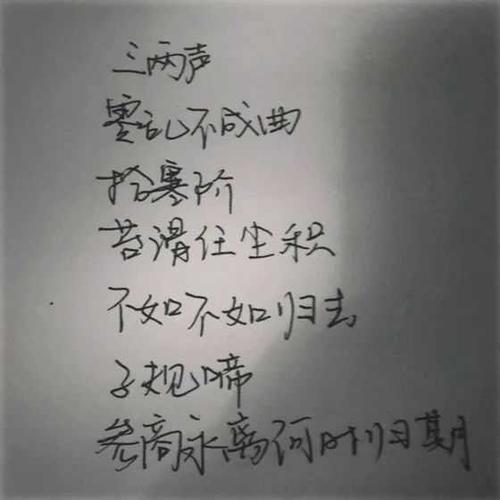 三两声
零乱不成曲
拾寒阶
苔滑任尘积
不如不如归去
子规啼
参商永离何时归期